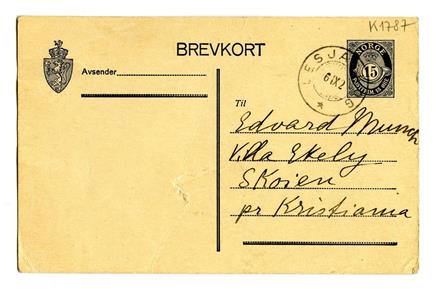 K1787
BREVKORT
Avsender
LESJA
6 IX 2
NORGE
15
Til
Edvard Munch
Villa Ekely
Skoien
pr Kristiania